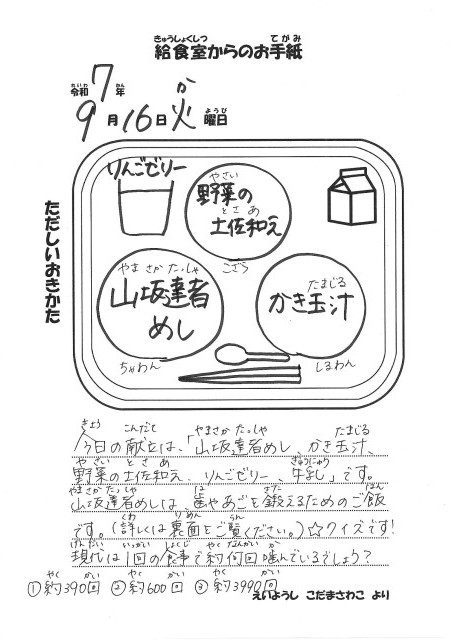 きゅうしょくしつ てがみ
給食室からのお手紙
れいわ ねん か
令和7年
ようび
9月16日火曜日
ただしいおきかた
りんごゼリー
やさい
野菜の
とさあ
土佐和え
こざら
やまさかたっしゃ
山坂達者
めし
ちゃわん
たまじる
かき玉汁
しるわん
きょう こんだて やまさかたっしゃ たまじる
今日の献立は、「山坂達者めし、かき玉汁、
やさい とさあ ぎゅうにゅう
野菜の土佐和え、りんごゼリー、牛乳」です。
やまさかたっしゃ は きた はん
山坂達者めしは、歯やあごを鍛えるためのご飯
くわ りめん らん
です。(詳しくは裏面をご覧ください。)☆クイズです!
げんだい いっかい しょくじ やくなんかい か
現代は1回の食事で約何回噛んでいるでしょう?
やく かい やく かい やく かい
①約390回 ②約600回 ③約3990回
えいようし こだまさわこ より